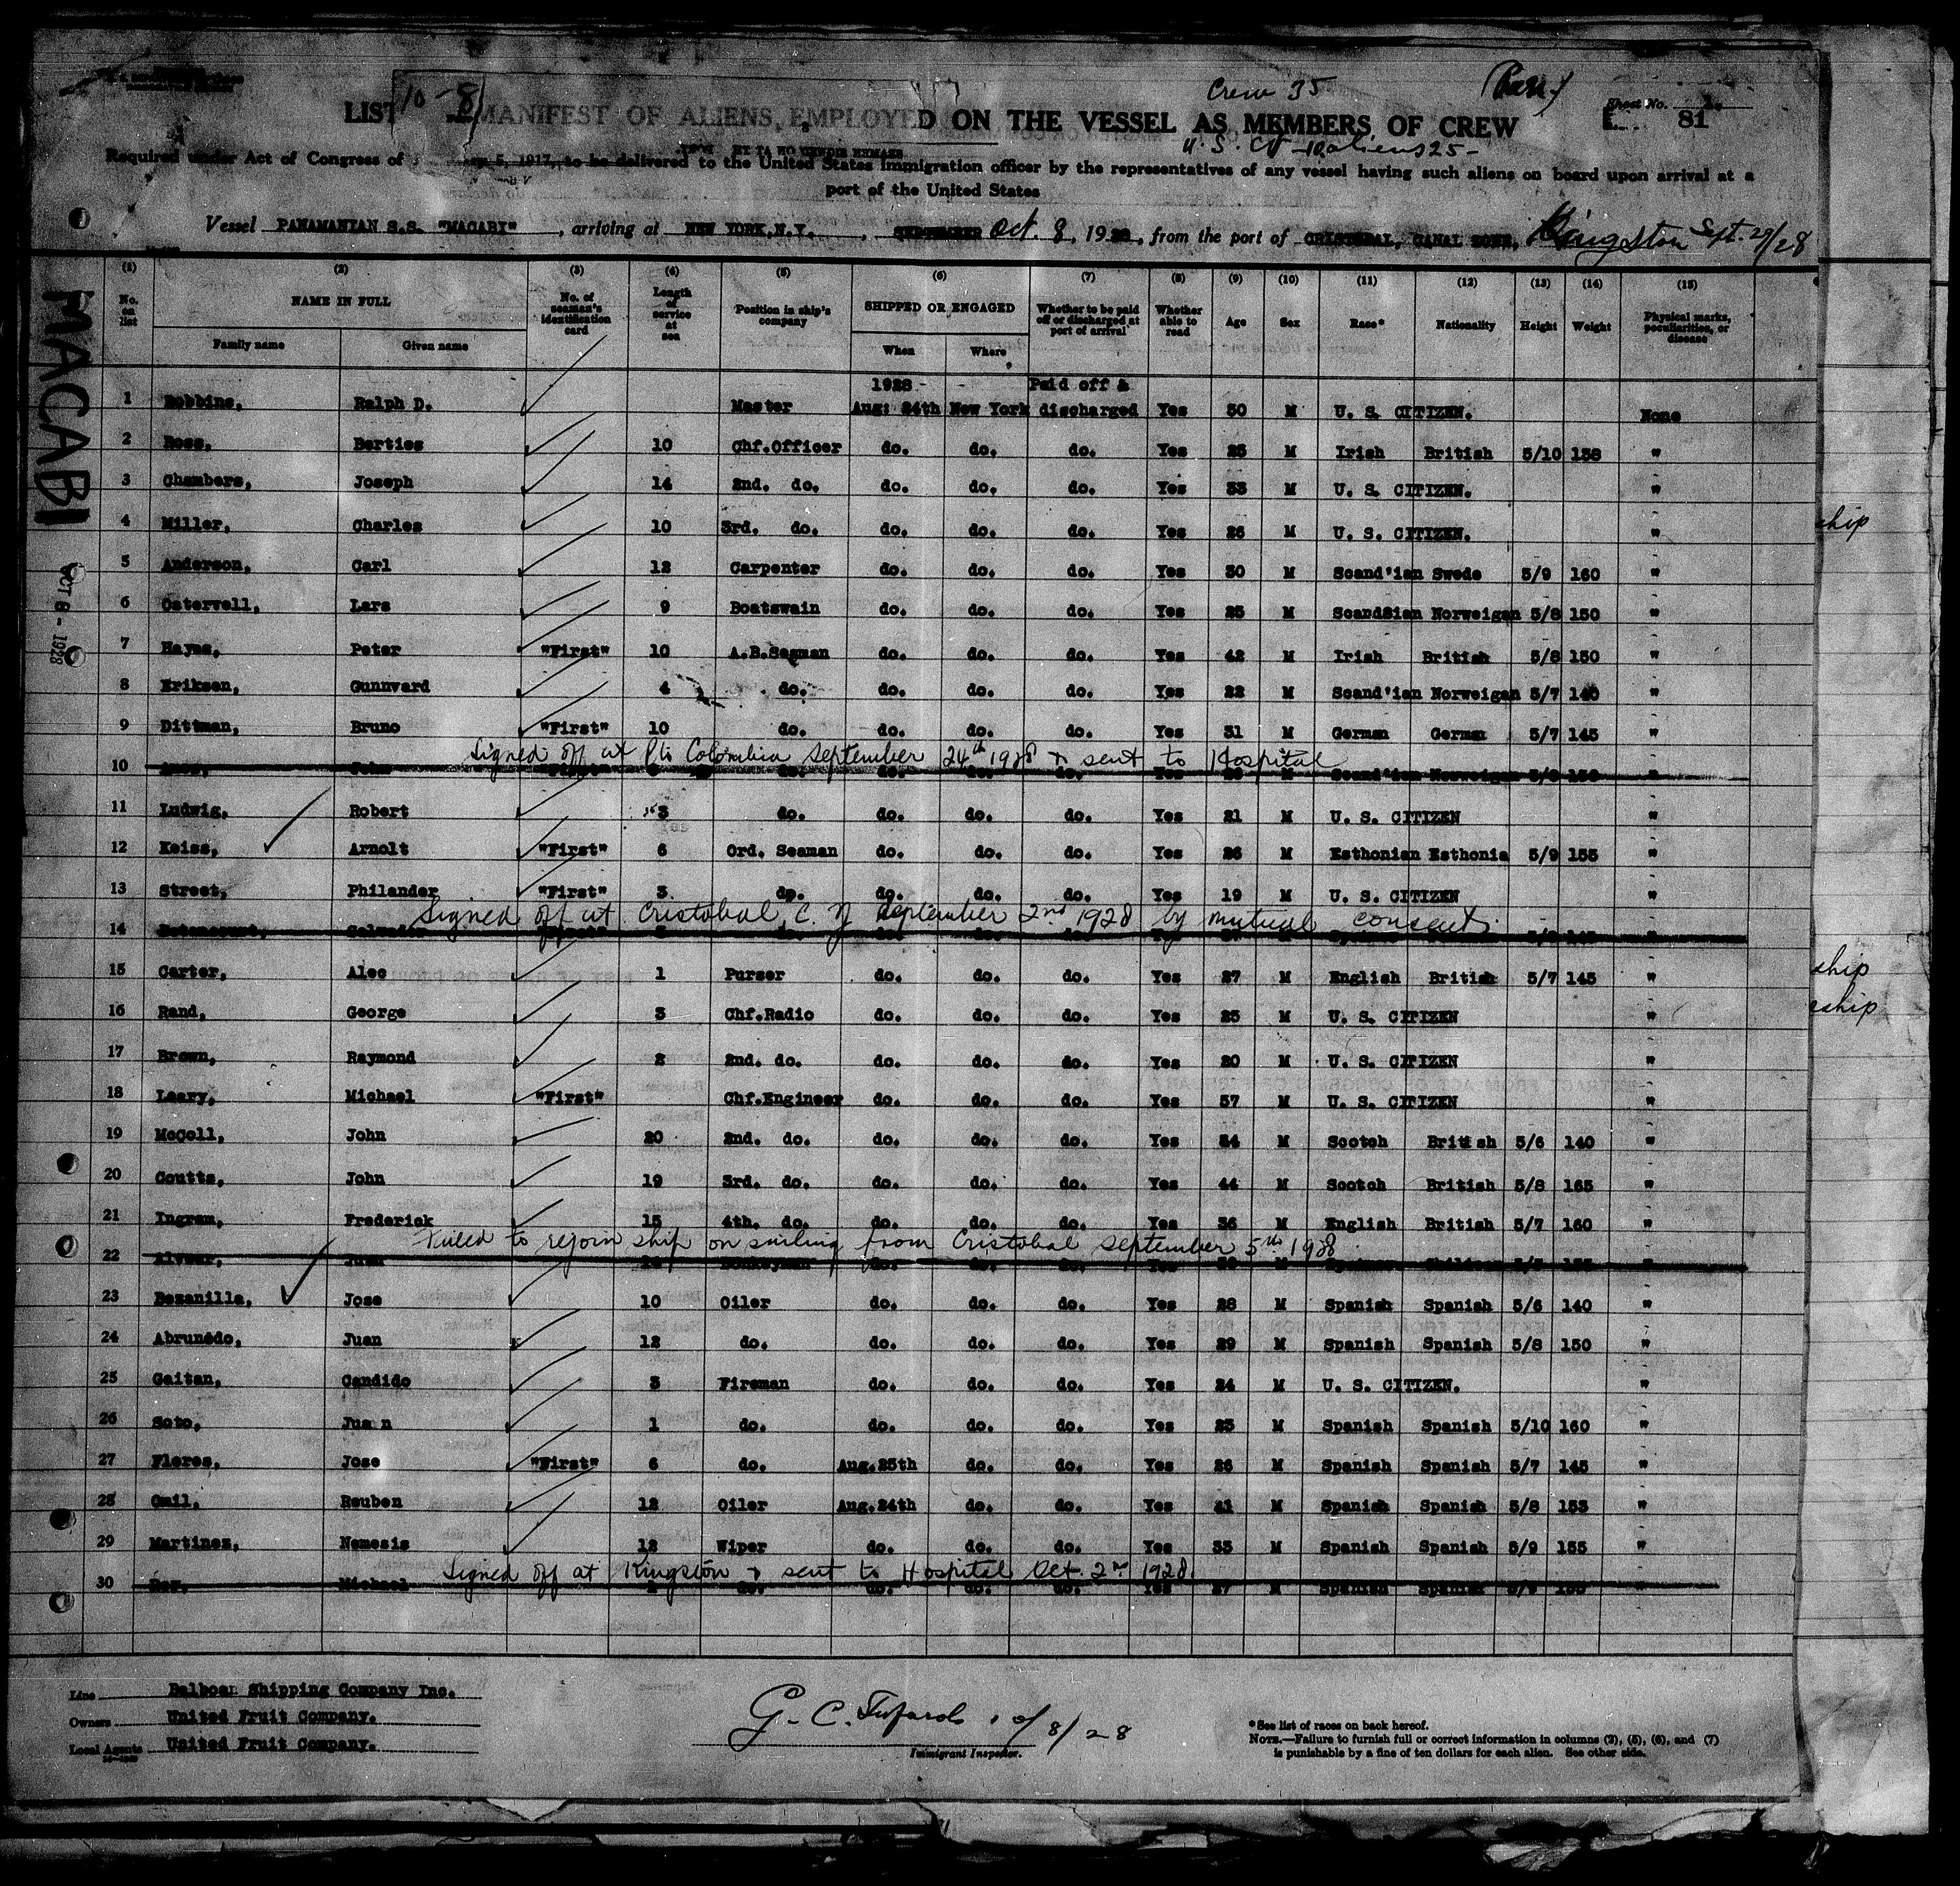 10-8
Crew 35
LIST MANIFEST OF ALIENS, EMPLOYED ON THE VESSEL AS MEMBERS OF CREW
Sheet No.
81
U. S. Cit - 10 aliens 25 -
Required under Act of Congress of 5, 1917, to be delivered to the United States immigration officer by the representatives of any vessel having such aliens on board upon arrival at a
port of the United States
Vessel PANAMANIAN S.S. "MACABI", arriving at NEW YORK, N.Y., SEPTEMBER Oct. 8, 1928, from the port of CRISTOBAL, CANAL ZONE, Kingston Sept. 29/28
MACABI
OCT 8 - 1928
(1) (2) (3) (4) (5) (6) (7) (8) (9) (10) (11) (12) (13) (14) (15)
No. on list NAME IN FULL No. of seaman's identification card Length of service at sea Position in ship's company SHIPPED OR ENGAGED Whether to be paid off or discharged at port of arrival Whether able to read Age Sex Race* Nationality Height Weight Physical marks, peculiarities, or disease
Family name Given name When Where
1928 - - Paid off &
1 Robbins, Ralph D. Master Aug: 24th New York discharged Yes 50 M U. S. CITIZEN. None
2 Ross, Berties 10 Chf.Officer do. do. do. Yes 25 M Irish British 5/10 158 "
3 Chambers, Joseph 14 2nd. do. do. do. do. Yes 33 M U. S. CITIZEN. "
4 Miller, Charles 10 3rd. do. do. do. do. Yes 26 M U. S. CITIZEN. "
5 Anderson, Carl 12 Carpenter do. do. do. Yes 30 M Scand'ian Swede 5/9 160 "
6 Ostervell, Lars 9 Boatswain do. do. do. Yes 25 M Scand8ian Norweigan 5/8 150 "
7 Hayes, Peter "First" 10 A.B.Seaman do. do. do. Yes 42 M Irish British 5/8 150 "
8 Eriksen, Gunnvard 4 do. do. do. do. Yes 22 M Scand'ian Norweigan 5/7 140 "
9 Dittman, Bruno "First" 10 do. do. do. do. Yes 31 M German German 5/7 145 "
Signed off at Pto Colombia September 24th 1928 & sent to Hospital
10 John Scand'ian Norweigan
11 Ludwig, Robert 3 do. do. do. do. Yes 21 M U. S. CITIZEN "
12 Keiss, Arnolt "First" 6 Ord. Seaman do. do. do. Yes 26 M Esthonian Esthonia 5/9 155 "
13 Street, Philander "First" 3 do. do. do. do. Yes 19 M U. S. CITIZEN "
Signed off at Cristobal, C. Z. September 2nd 1928 by mutual consent.
14
15 Carter, Alec 1 Purser do. do. do. Yes 27 M English British 5/7 145 "
16 Rand, George 3 Chf.Radio do. do. do. Yes 25 M U. S. CITIZEN "
17 Brown, Raymond 2 2nd. do. do. do. do. Yes 20 M U. S. CITIZEN "
18 Leary, Michael "First" Chf.Engineer do. do. do. Yes 57 M U. S. CITIZEN "
19 McColl, John 20 2nd. do. do. do. do. Yes 34 M Scotch British 5/6 140 "
20 Coutts, John 19 3rd. do. do. do. do. Yes 44 M Scotch British 5/8 165 "
21 Ingram, Frederick 15 4th. do. do. do. do. Yes 36 M English British 5/7 160 "
Failed to rejoin ship on sailing from Cristobal September 5th 1928
22 Juan Donkeyman
23 Bezanilla, Jose 10 Oiler do. do. do. Yes 28 M Spanish Spanish 5/6 140 "
24 Abrunedo, Juan 12 do. do. do. do. Yes 29 M Spanish Spanish 5/8 150 "
25 Gaitan, Candido 3 Fireman do. do. do. Yes 24 M U. S. CITIZEN. "
26 Soto, Juan 1 do. do. do. do. Yes 23 M Spanish Spanish 5/10 160 "
27 Flores, Jose "First" 6 do. Aug.25th do. do. Yes 26 M Spanish Spanish 5/7 145 "
28 Omil, Reuben 12 Oiler Aug.24th do. do. Yes 41 M Spanish Spanish 5/8 153 "
29 Martinez, Nemesis 12 Wiper do. do. do. Yes 33 M Spanish Spanish 5/9 155 "
Signed off at Kingston & sent to Hospital Oct. 2nd 1928.
30 Michael do. do. do. do. Yes 27 M Spanish Spanish
ship
ship
ship
Line Balboan Shipping Company Inc.
Owners United Fruit Company.
Local Agents United Fruit Company.
G. C. 10/8/28
Immigrant Inspector.
*See list of races on back hereof.
NOTE.—Failure to furnish full or correct information in columns (2), (5), (6), and (7)
is punishable by a fine of ten dollars for each alien. See other side.